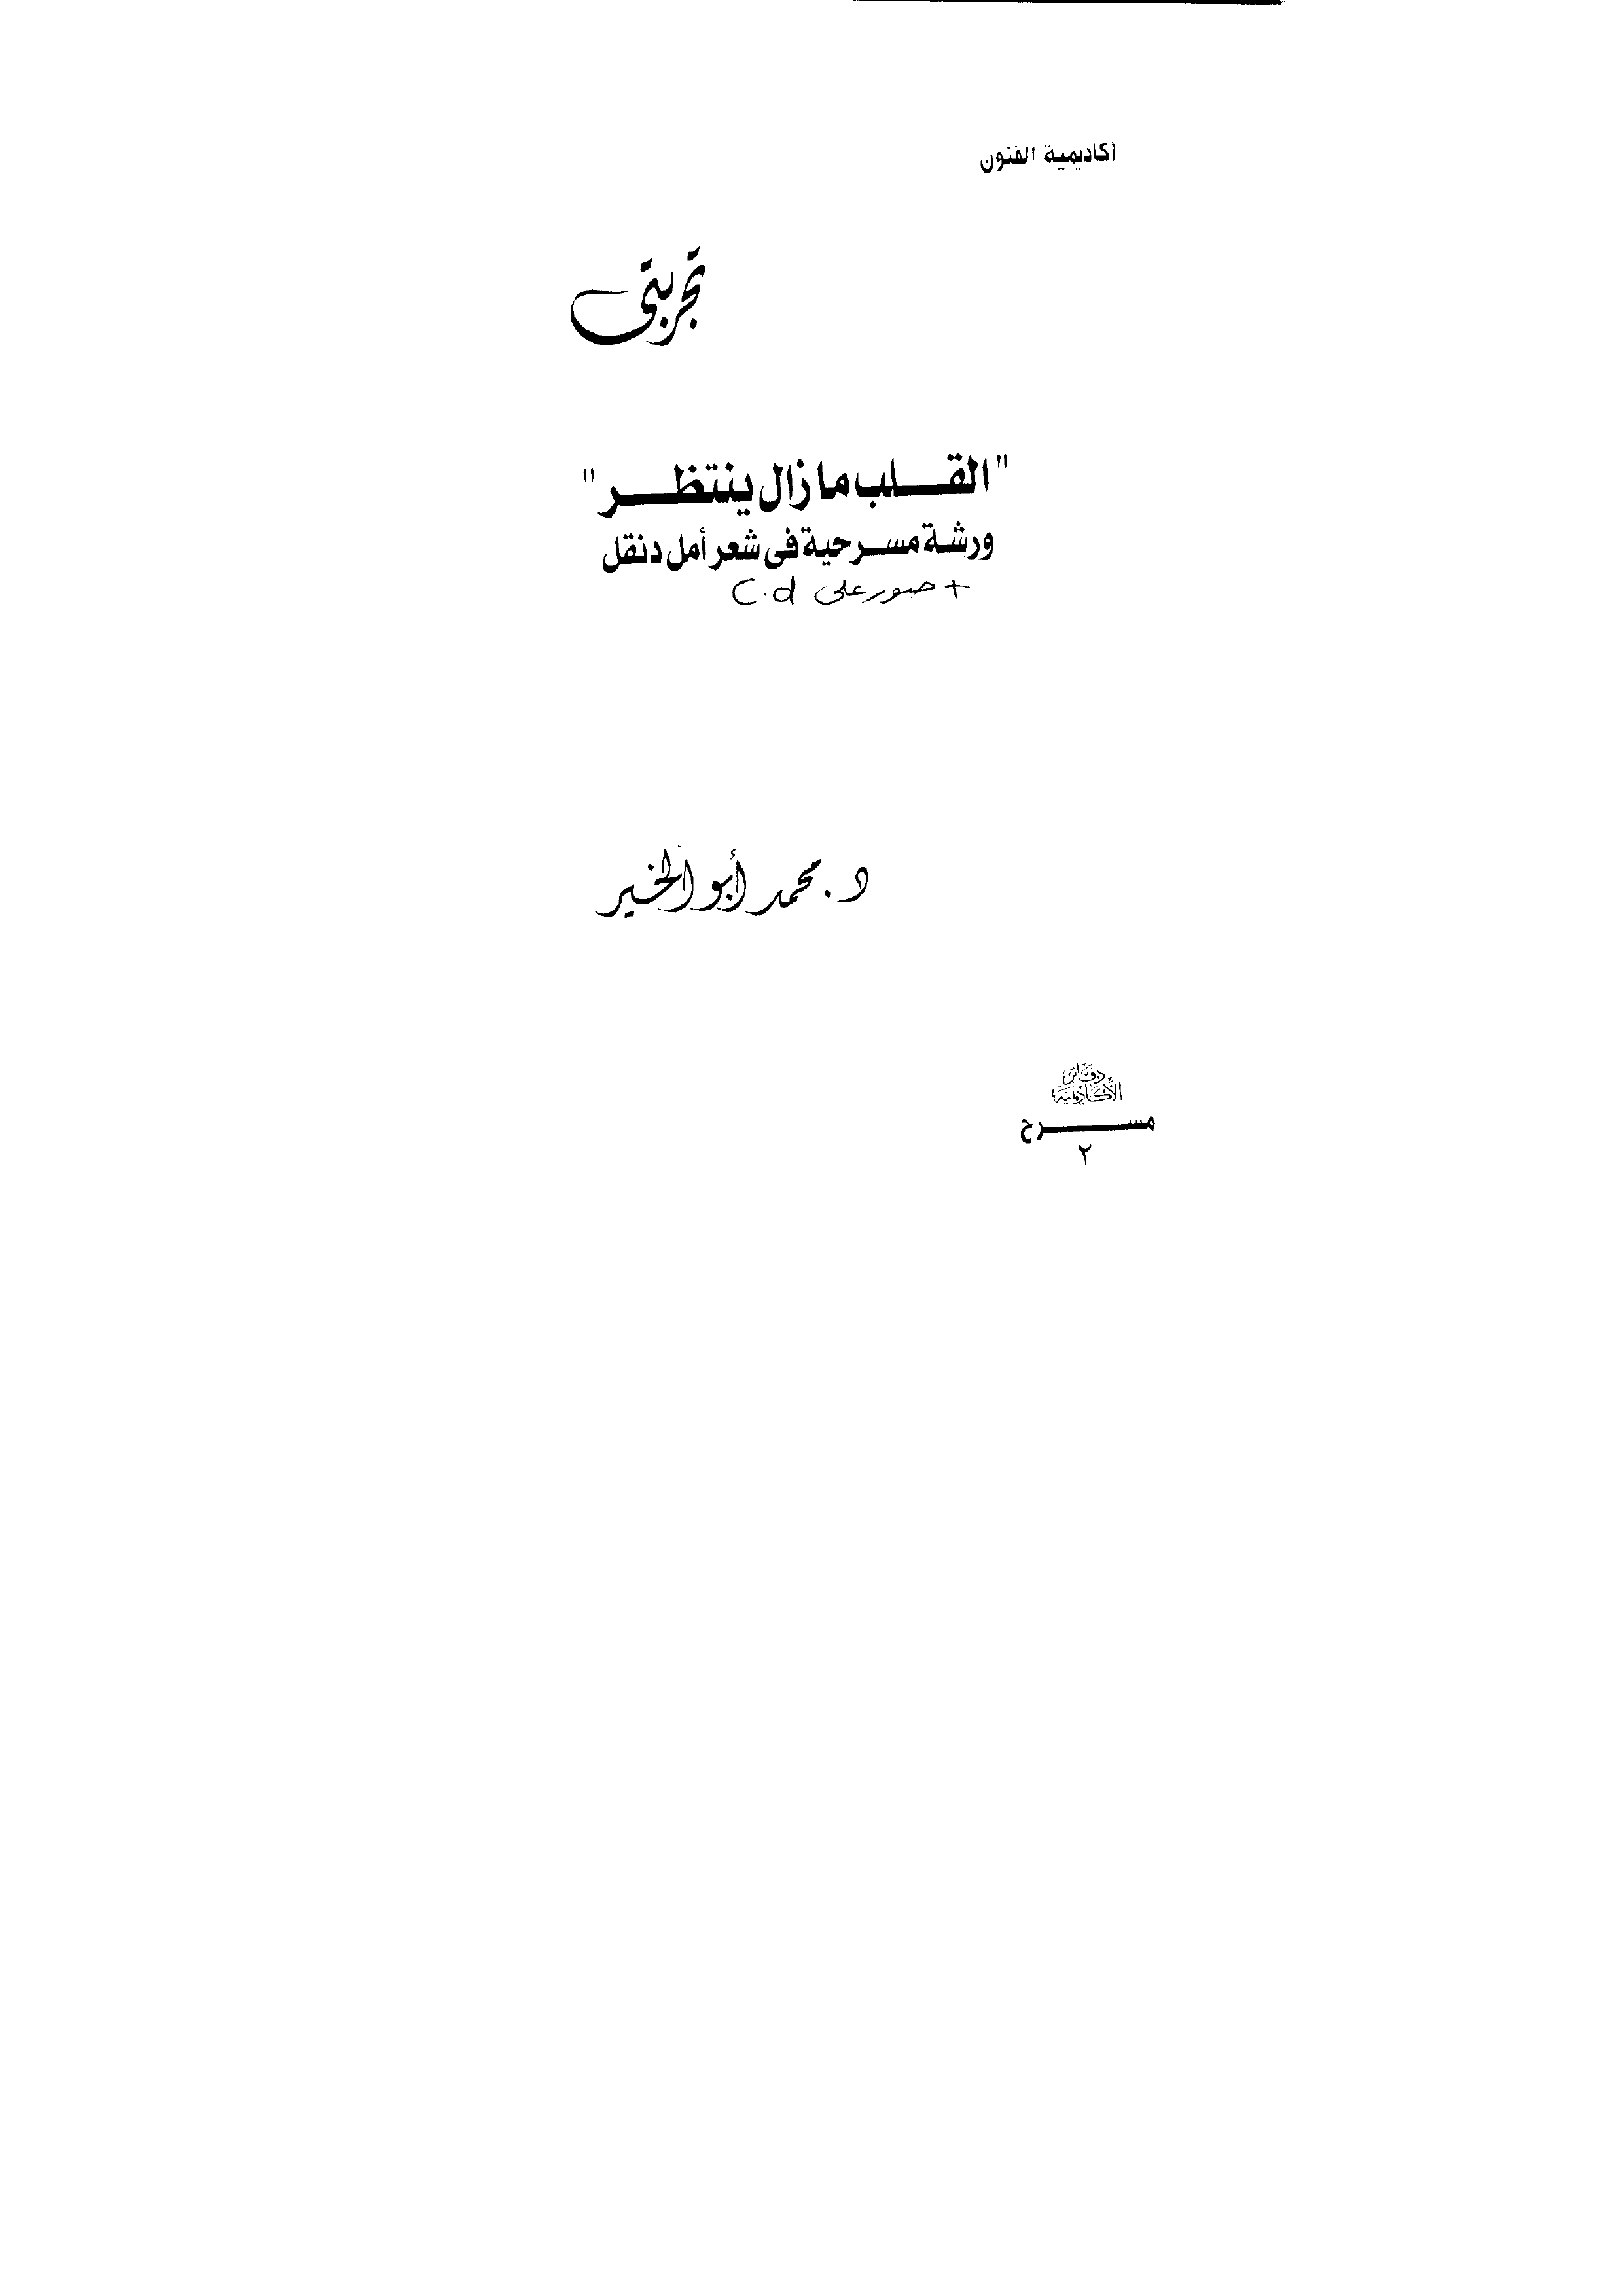 أكاديمية الفنون
تجربتى
"القلب مازال ينتظر"
ورشة مسرحية فى شعر أمل دنقل
+ صور على C.d
د. محمد أبو الخير
دفاتر
الأكاديمية
مسرح
٢